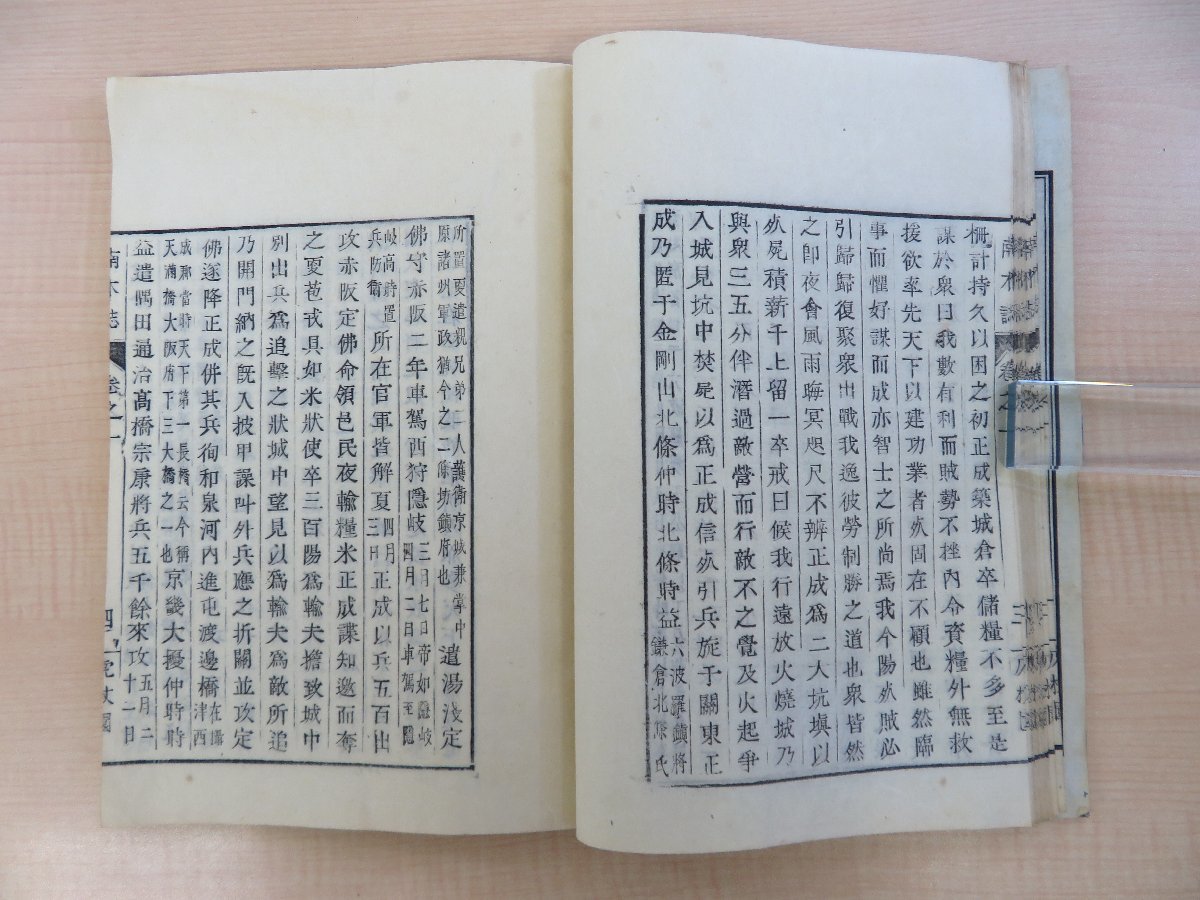 柵計持久以困之初正成築城倉卒儲糧不多至是
謀於衆曰我數有利而賊勢不挫內今資糧外無救
援欲率先天下以建功業者死固在不顧也雖然臨
事而懼好謀而成亦智士之所尚焉我今陽死賊必
引歸歸復聚衆出戰我逸彼勞制勝之道也衆皆然
之卽夜會風雨晦冥咫尺不辨正成爲二大坑塡以
死屍積薪于上留一卒戒曰候我行遠放火燒城乃
與衆三五分伴潛過敵營而行敵不之覺及火起爭
入城見坑中焚屍以爲正成信死引兵旋于關東正
成乃匿于金剛山北條仲時北條時益六波羅鎭將鎌倉北條氏
所置更遣親兄弟二人護衛京城兼掌中原諸州軍政猶今之二條坊鎭府也遣湯淺定
佛守赤阪二年車駕西狩隱岐三月七日帝如隱岐四月二日車駕至隱
岐高時置兵防衛所在官軍皆解夏四月三日正成以兵五百出
攻赤阪定佛命領邑民夜輸糧米正成諜知邀而奪
之更苞戎具如米狀使卒三百陽爲輸夫擔致城中
別出兵爲追擊之狀城中望見以爲輸夫爲敵所追
乃開門納之旣入披甲譟叫外兵應之折關並攻定
佛遂降正成併其兵徇和泉河內進屯渡邊橋在攝津西
成郡當時天下第一長橋云今稱天滿橋大阪府下三大橋之一也京畿大擾仲時時
益遣隅田通治高橋宗康將兵五千餘來攻五月二十一日
南木誌 卷之一 四 虎杖園